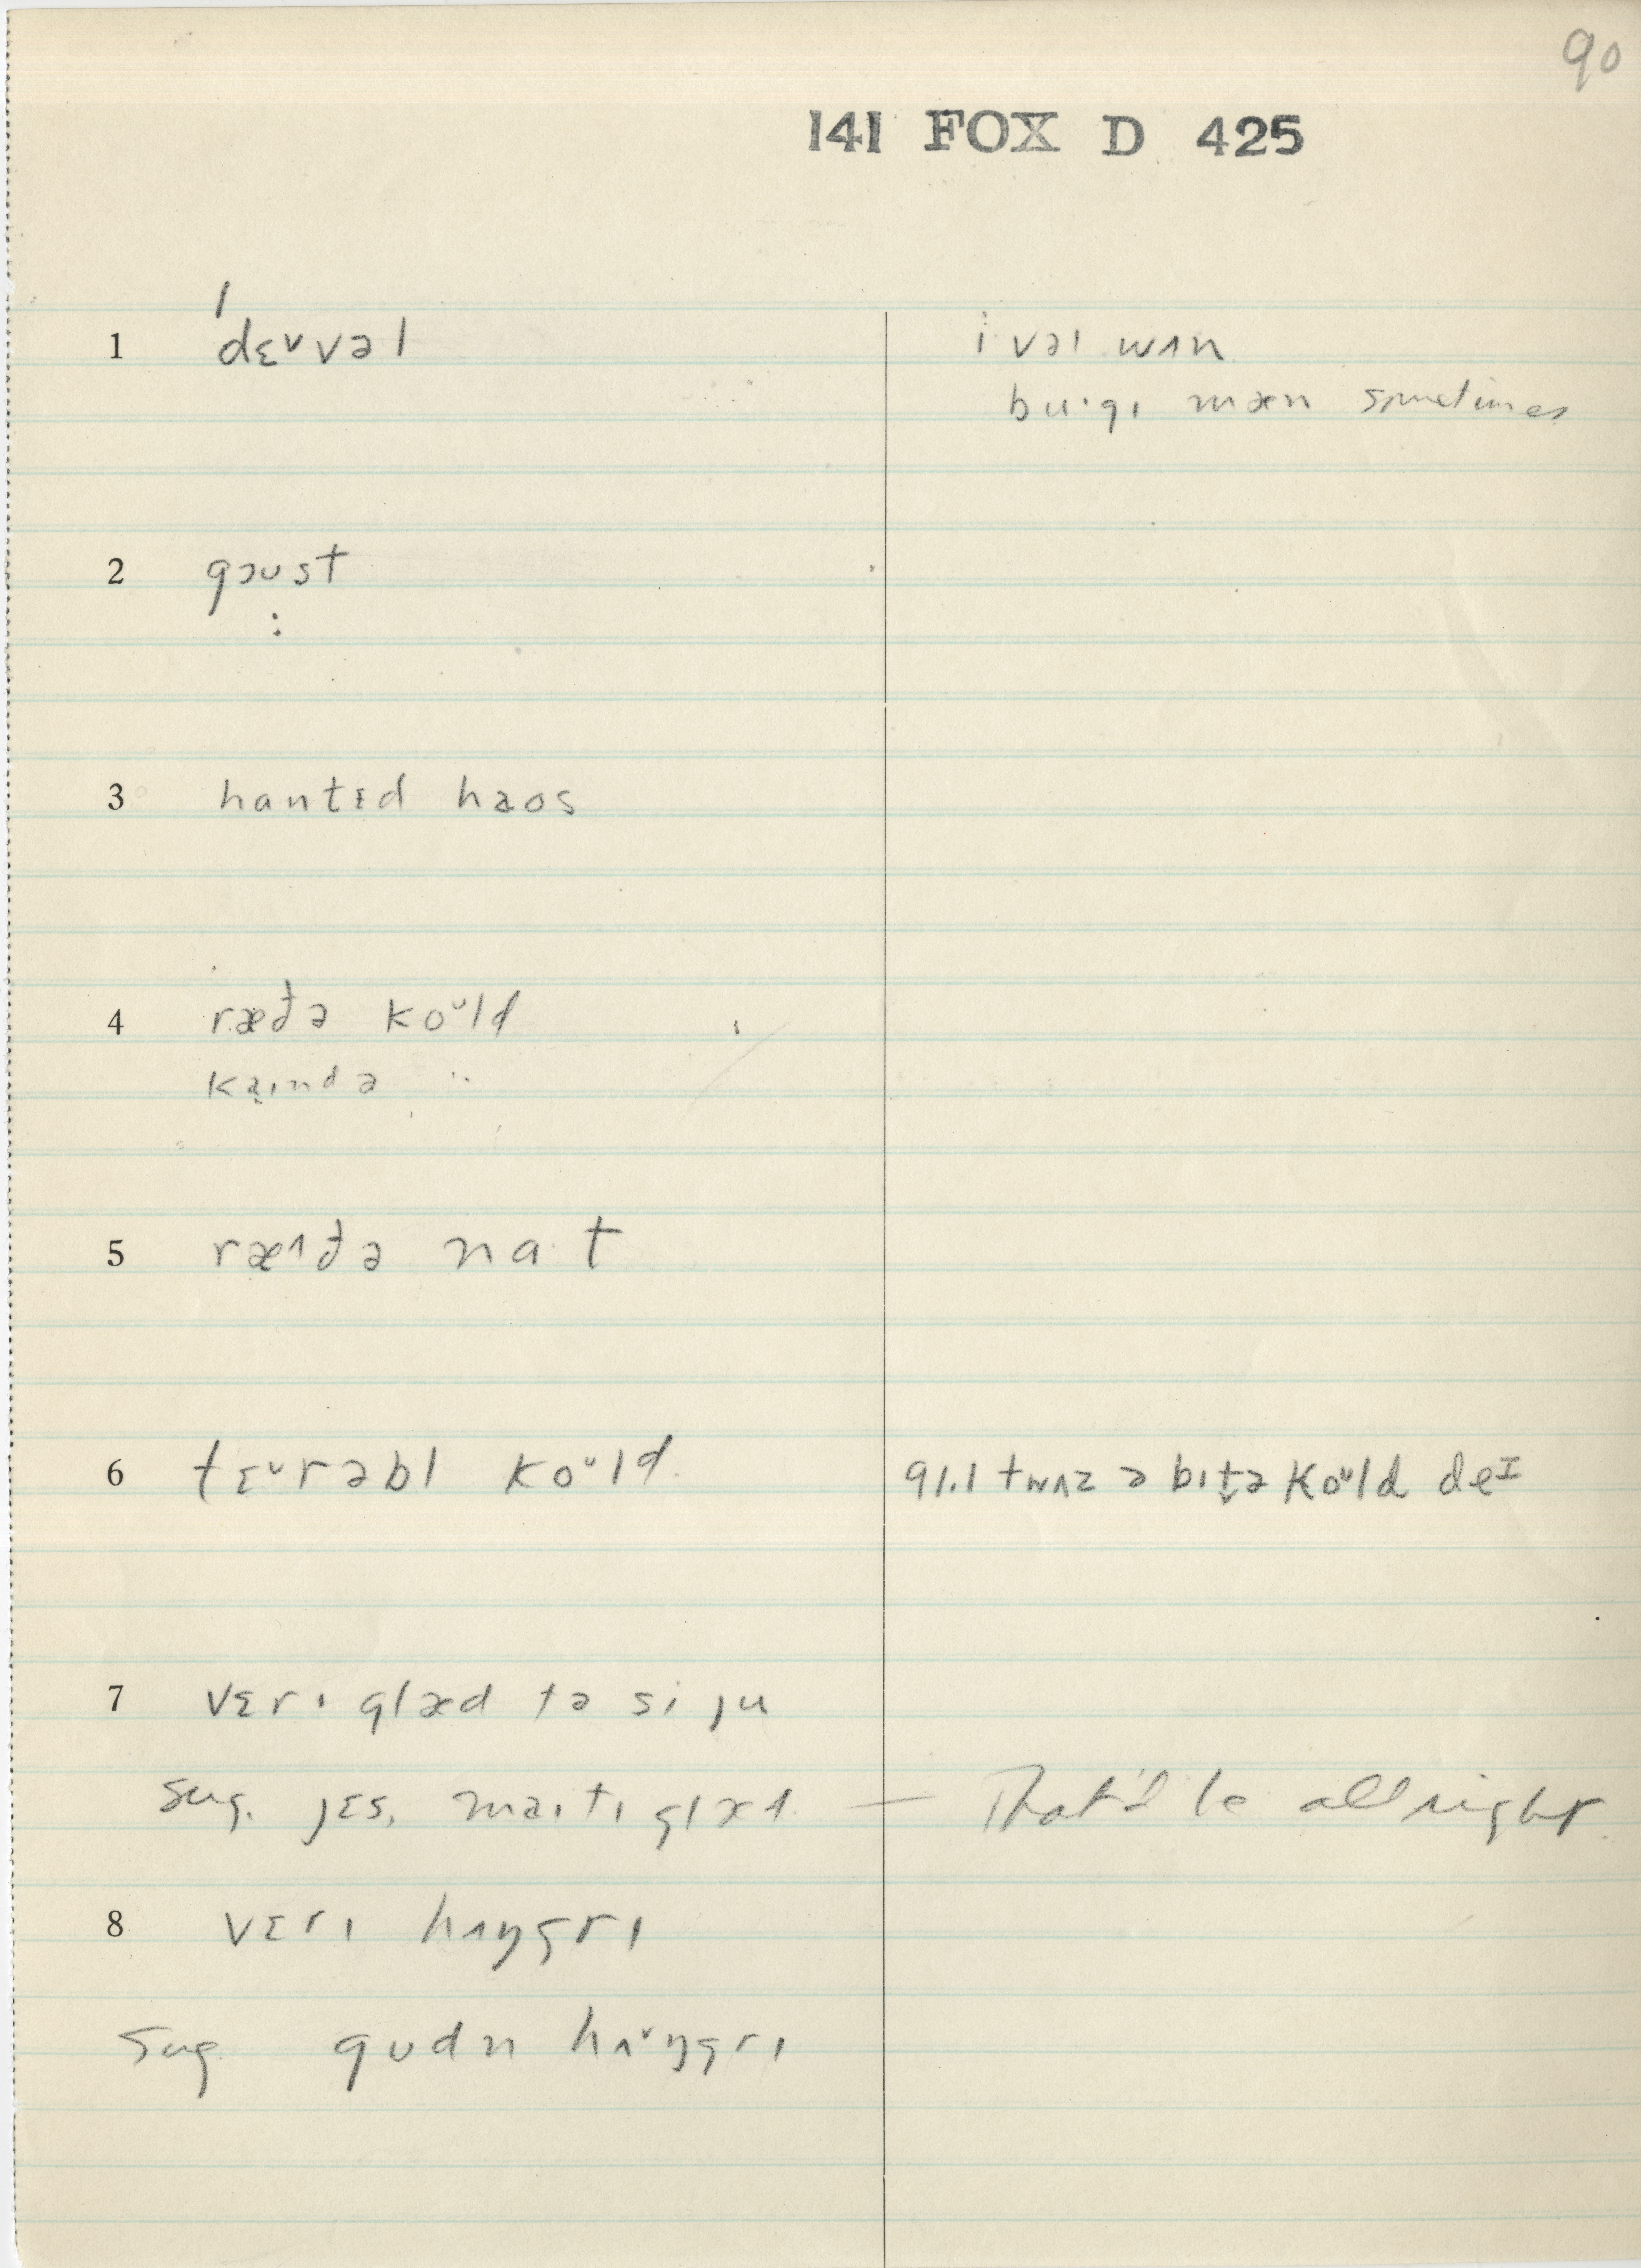 90
141 FOX D 425
1 ˈdɛ˅vəl
i vəl wʌn
bu·gɪ mæn sometimes
2 gɔust
3 hantɛd haos
4 ræðə koᵘld
kaɪndə "
5 ræ˄ðə na·t
6 tɛ˅rəbl koᵘld
91.1 twʌz ə bɪt̬ə koᵘld deᴵ
7 vɛrɪ glæd tə si ju
sug. jɛs, maɪtɪ glæd — That'd be all right
8 vɛrɪ hʌŋgrɪ
sug gudn hʌ˅ŋgrɪ